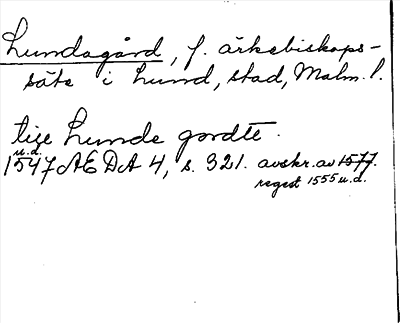 Lundagård, f. ärkebiskops-
säte i Lund, stad, Malm. l.
tige Lunde gordte.
u.d.
1547 AEDA 4, s. 321. avskr. av 1577.
regest 1555 u.d.